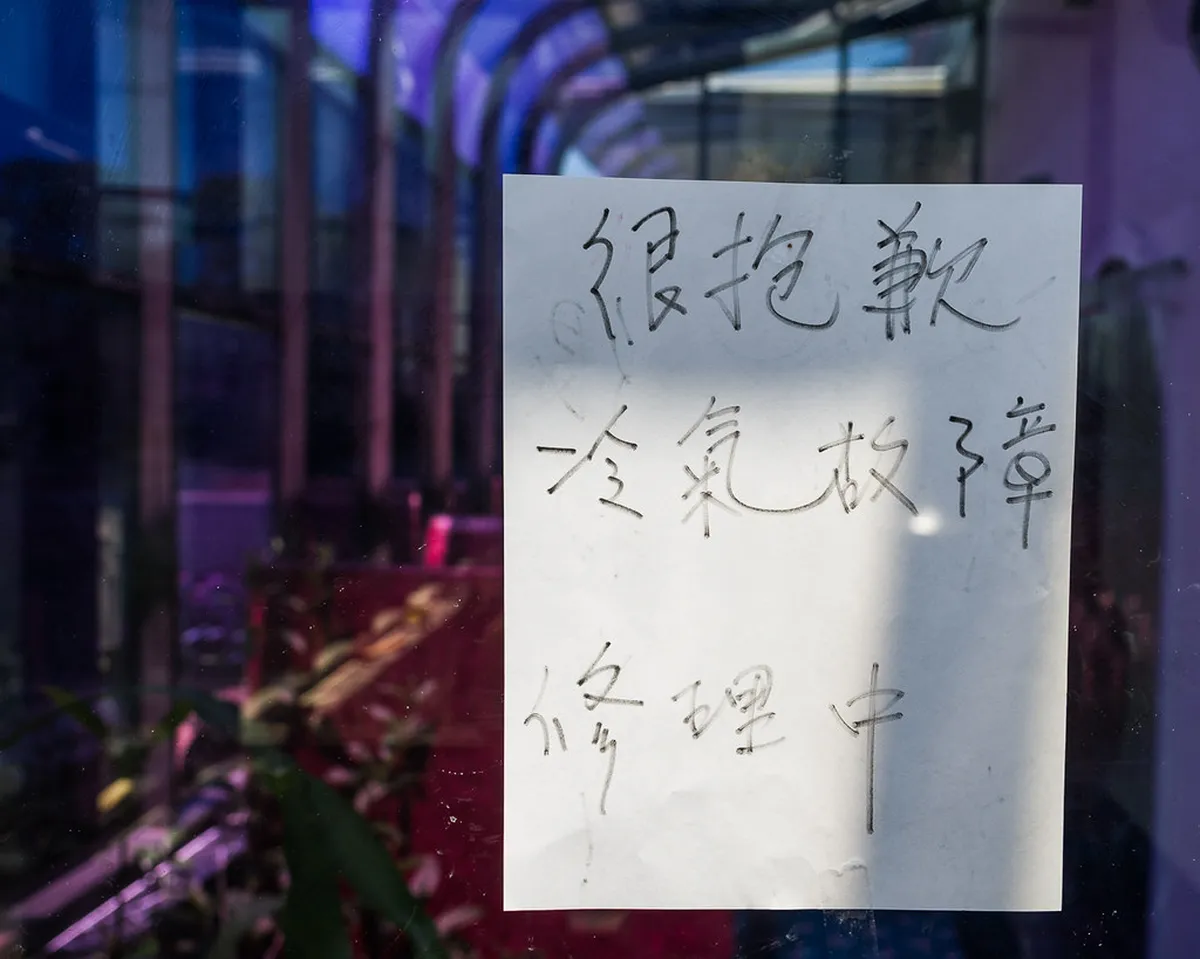 很抱歉
冷氣故障
修理中